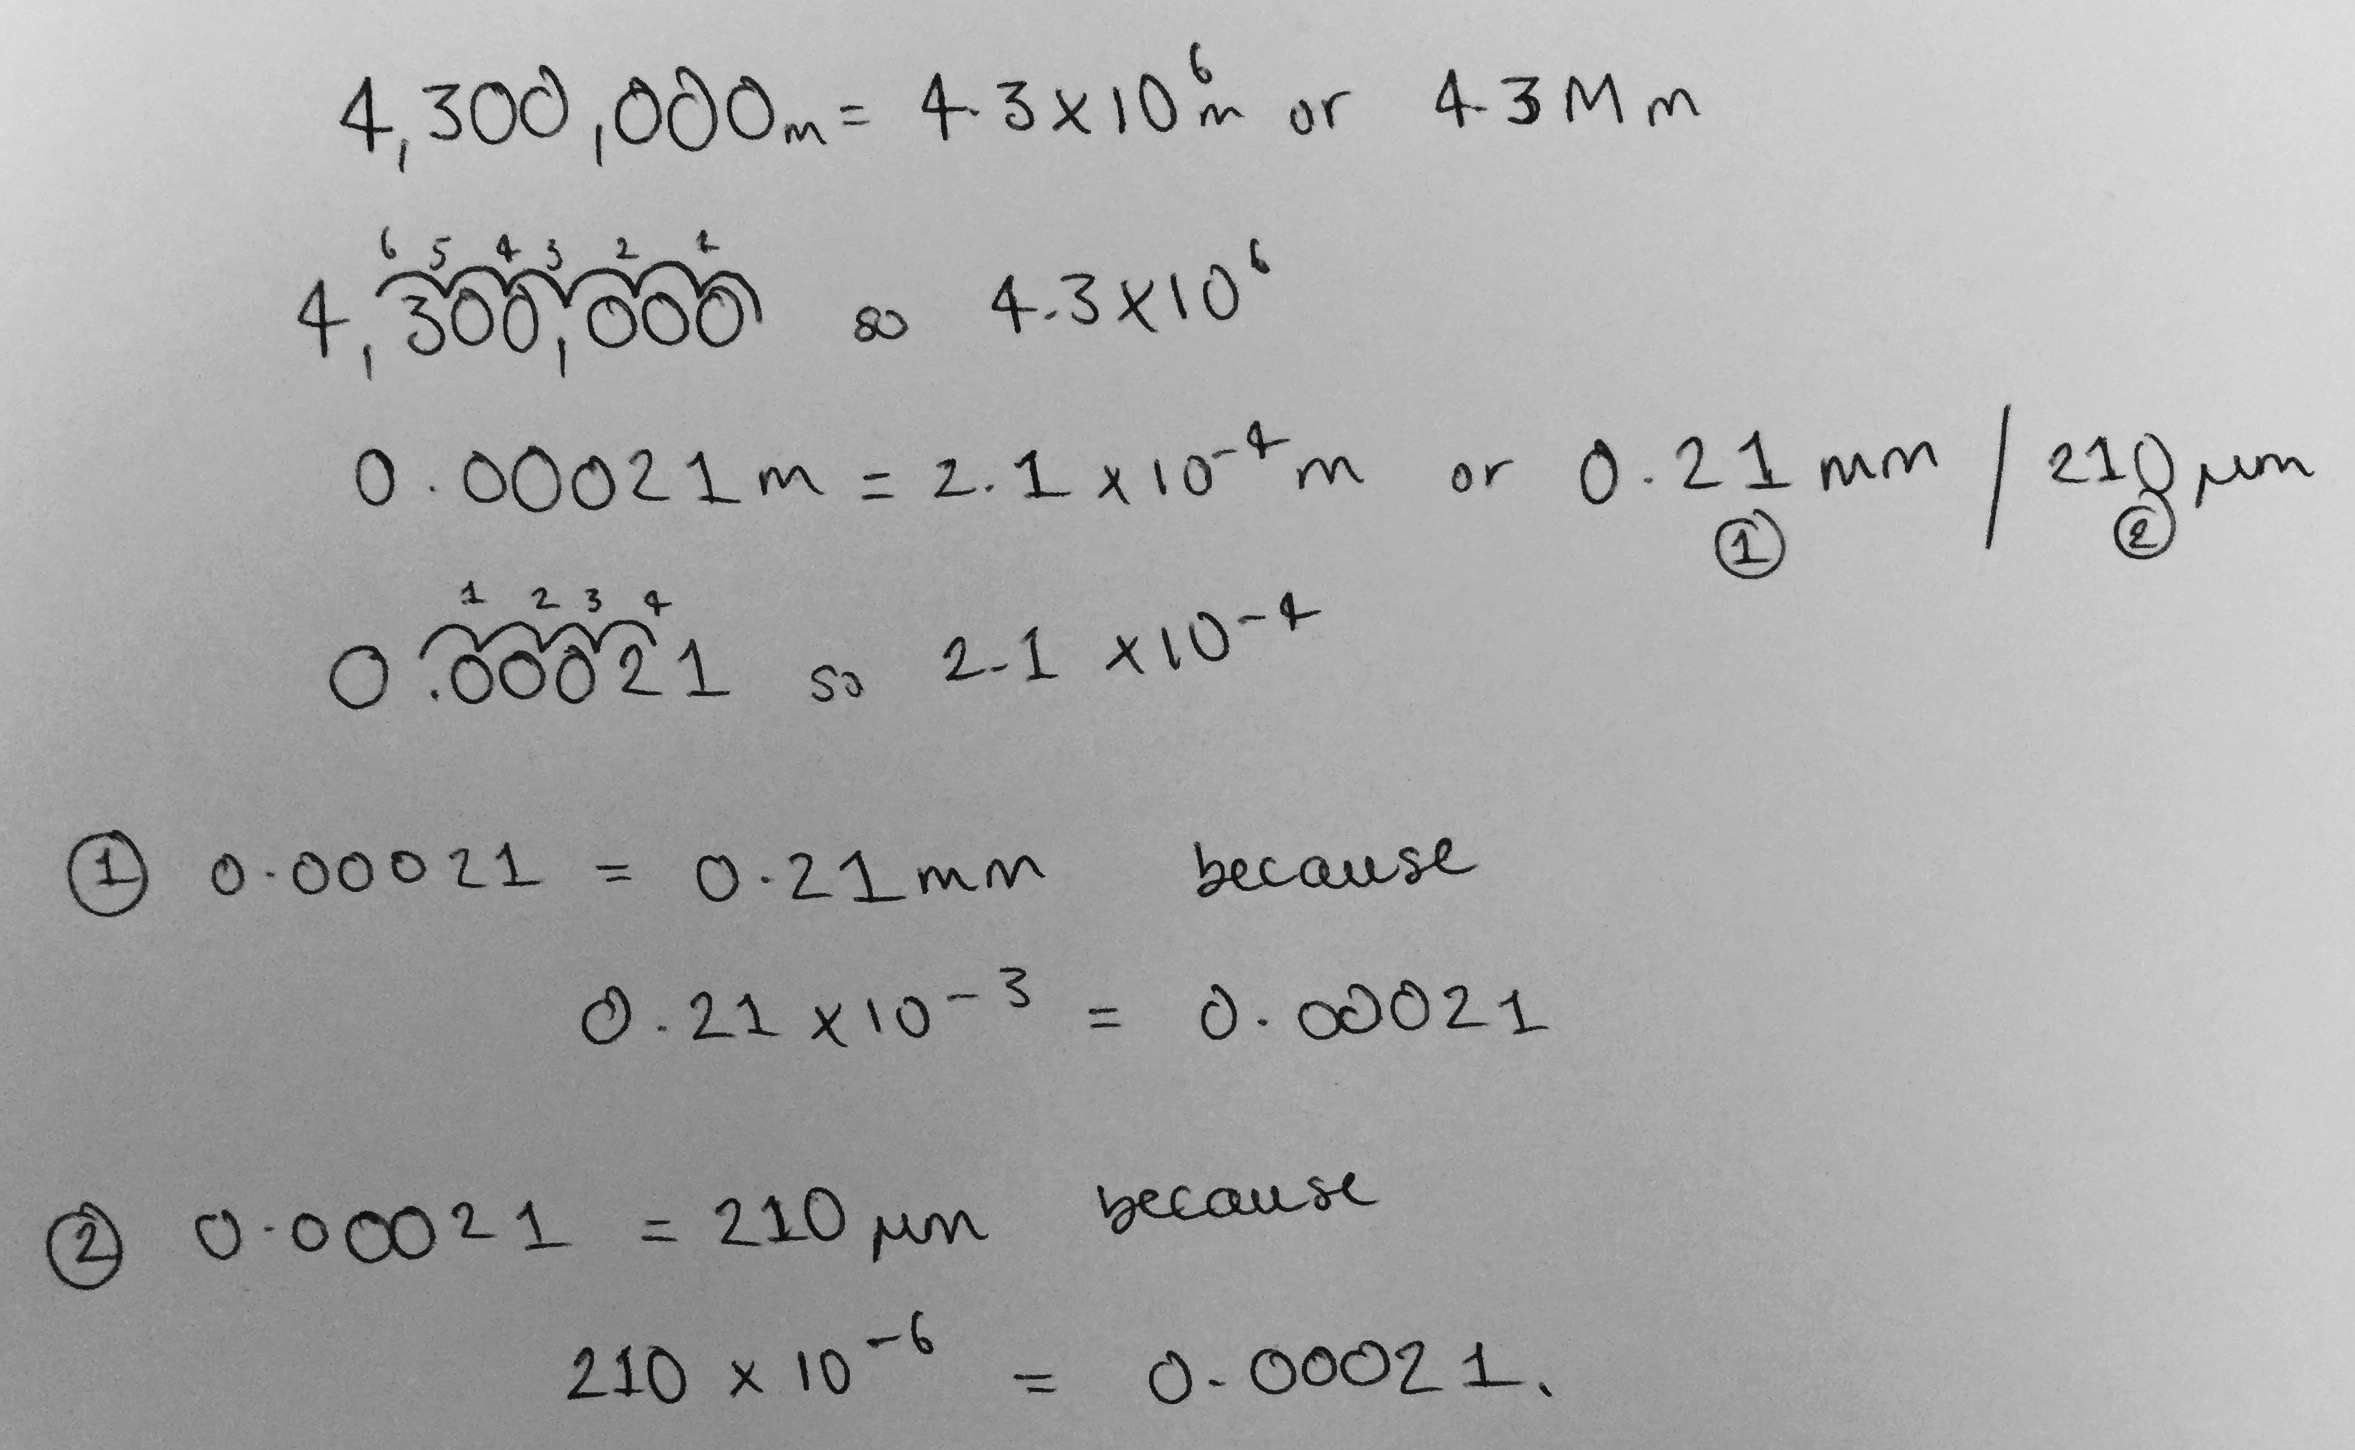 4,300,000m = 4.3x10⁶m or 4.3Mm
6 5 4 3 2 1
4,300,000 so 4.3x10⁶
0.00021m = 2.1 x10⁻⁴m or 0.21mm / 210μm
① ②
1 2 3 4
0.00021 so 2.1 x10⁻⁴
① 0.00021 = 0.21mm because
0.21 x10⁻³ = 0.00021
② 0.00021 = 210μm because
210 x 10⁻⁶ = 0.00021.